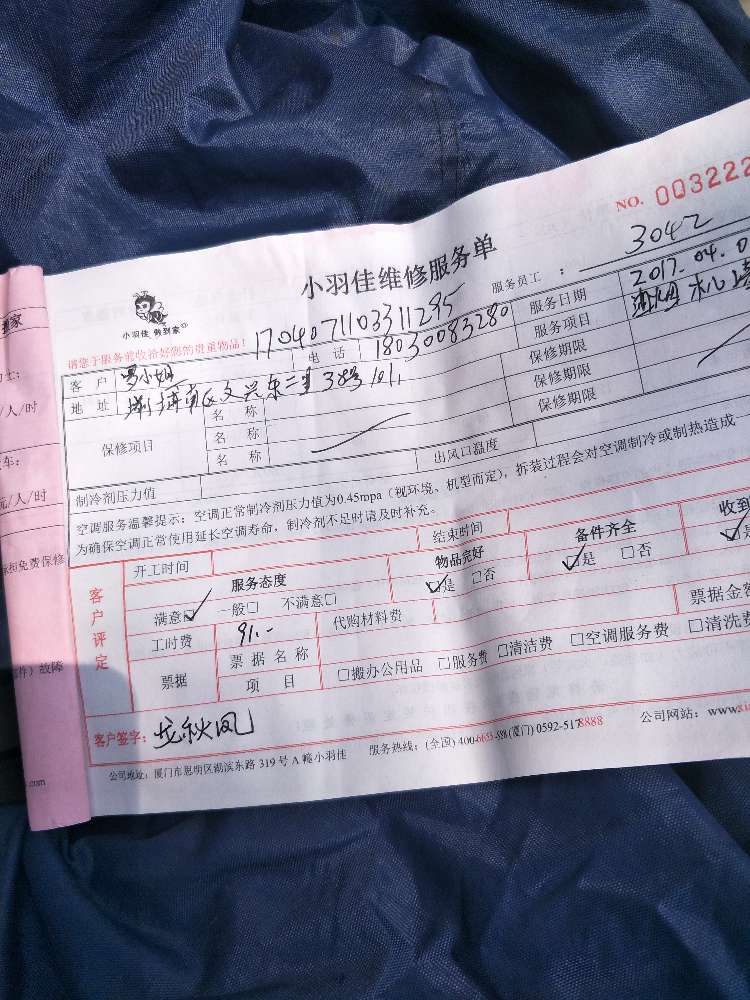 NO. 003222
小羽佳维修服务单
小羽佳 帮到家
服务员工： 3042
请您于服务前收拾好您的贵重物品！
1704071103311295
服务日期 2017.04.0
客户 罗小姐 电话 18030083280 服务项目
地址 文兴东二里38号101 保修期限
保修项目 名称 保修期限
名称 保修期限
名称
制冷剂压力值 出风口温度
空调服务温馨提示：空调正常制冷剂压力值为0.45mpa（视环境、机型而定），拆装过程会对空调制冷或制热造成
为确保空调正常使用延长空调寿命，制冷剂不足时请及时补充。
客户评定
开工时间 结束时间
服务态度 物品完好 备件齐全 收到
满意□ 一般□ 不满意□ □是 □否 □是 □否 □是
工时费 91.- 代购材料费
票据 票据名称 票据金
项目 □搬办公用品 □服务费 □清洁费 □空调服务费 □清洗费
客户签字： 龙秋凤
公司地址：厦门市思明区湖滨东路319号A幢小羽佳 服务热线：(全国) 400- (厦门) 0592-5178888 公司网站：www.
到家
/人/时
车：
元/人/时
免费保修
件）故障
.com